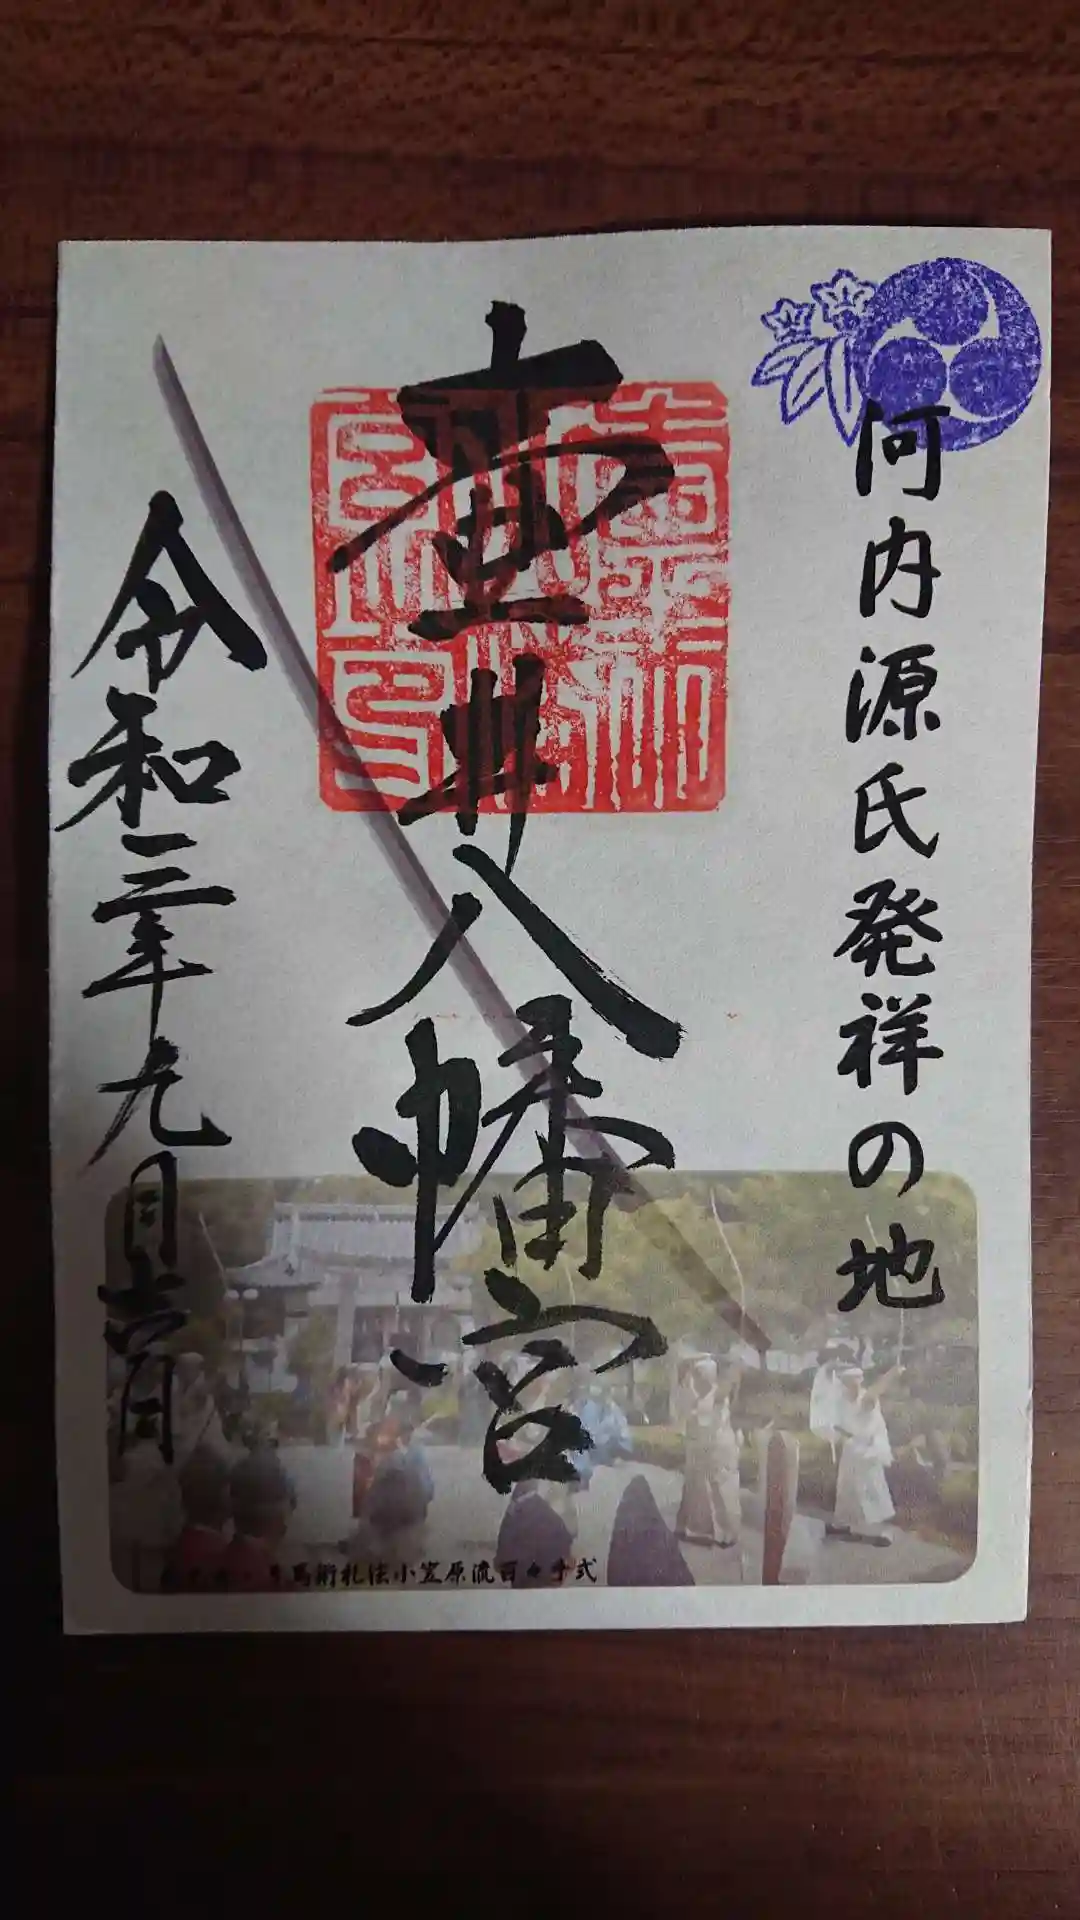 河内源氏発祥の地
壷井八幡宮
令和三年九月十六日
弓馬術礼法小笠原流百々手式